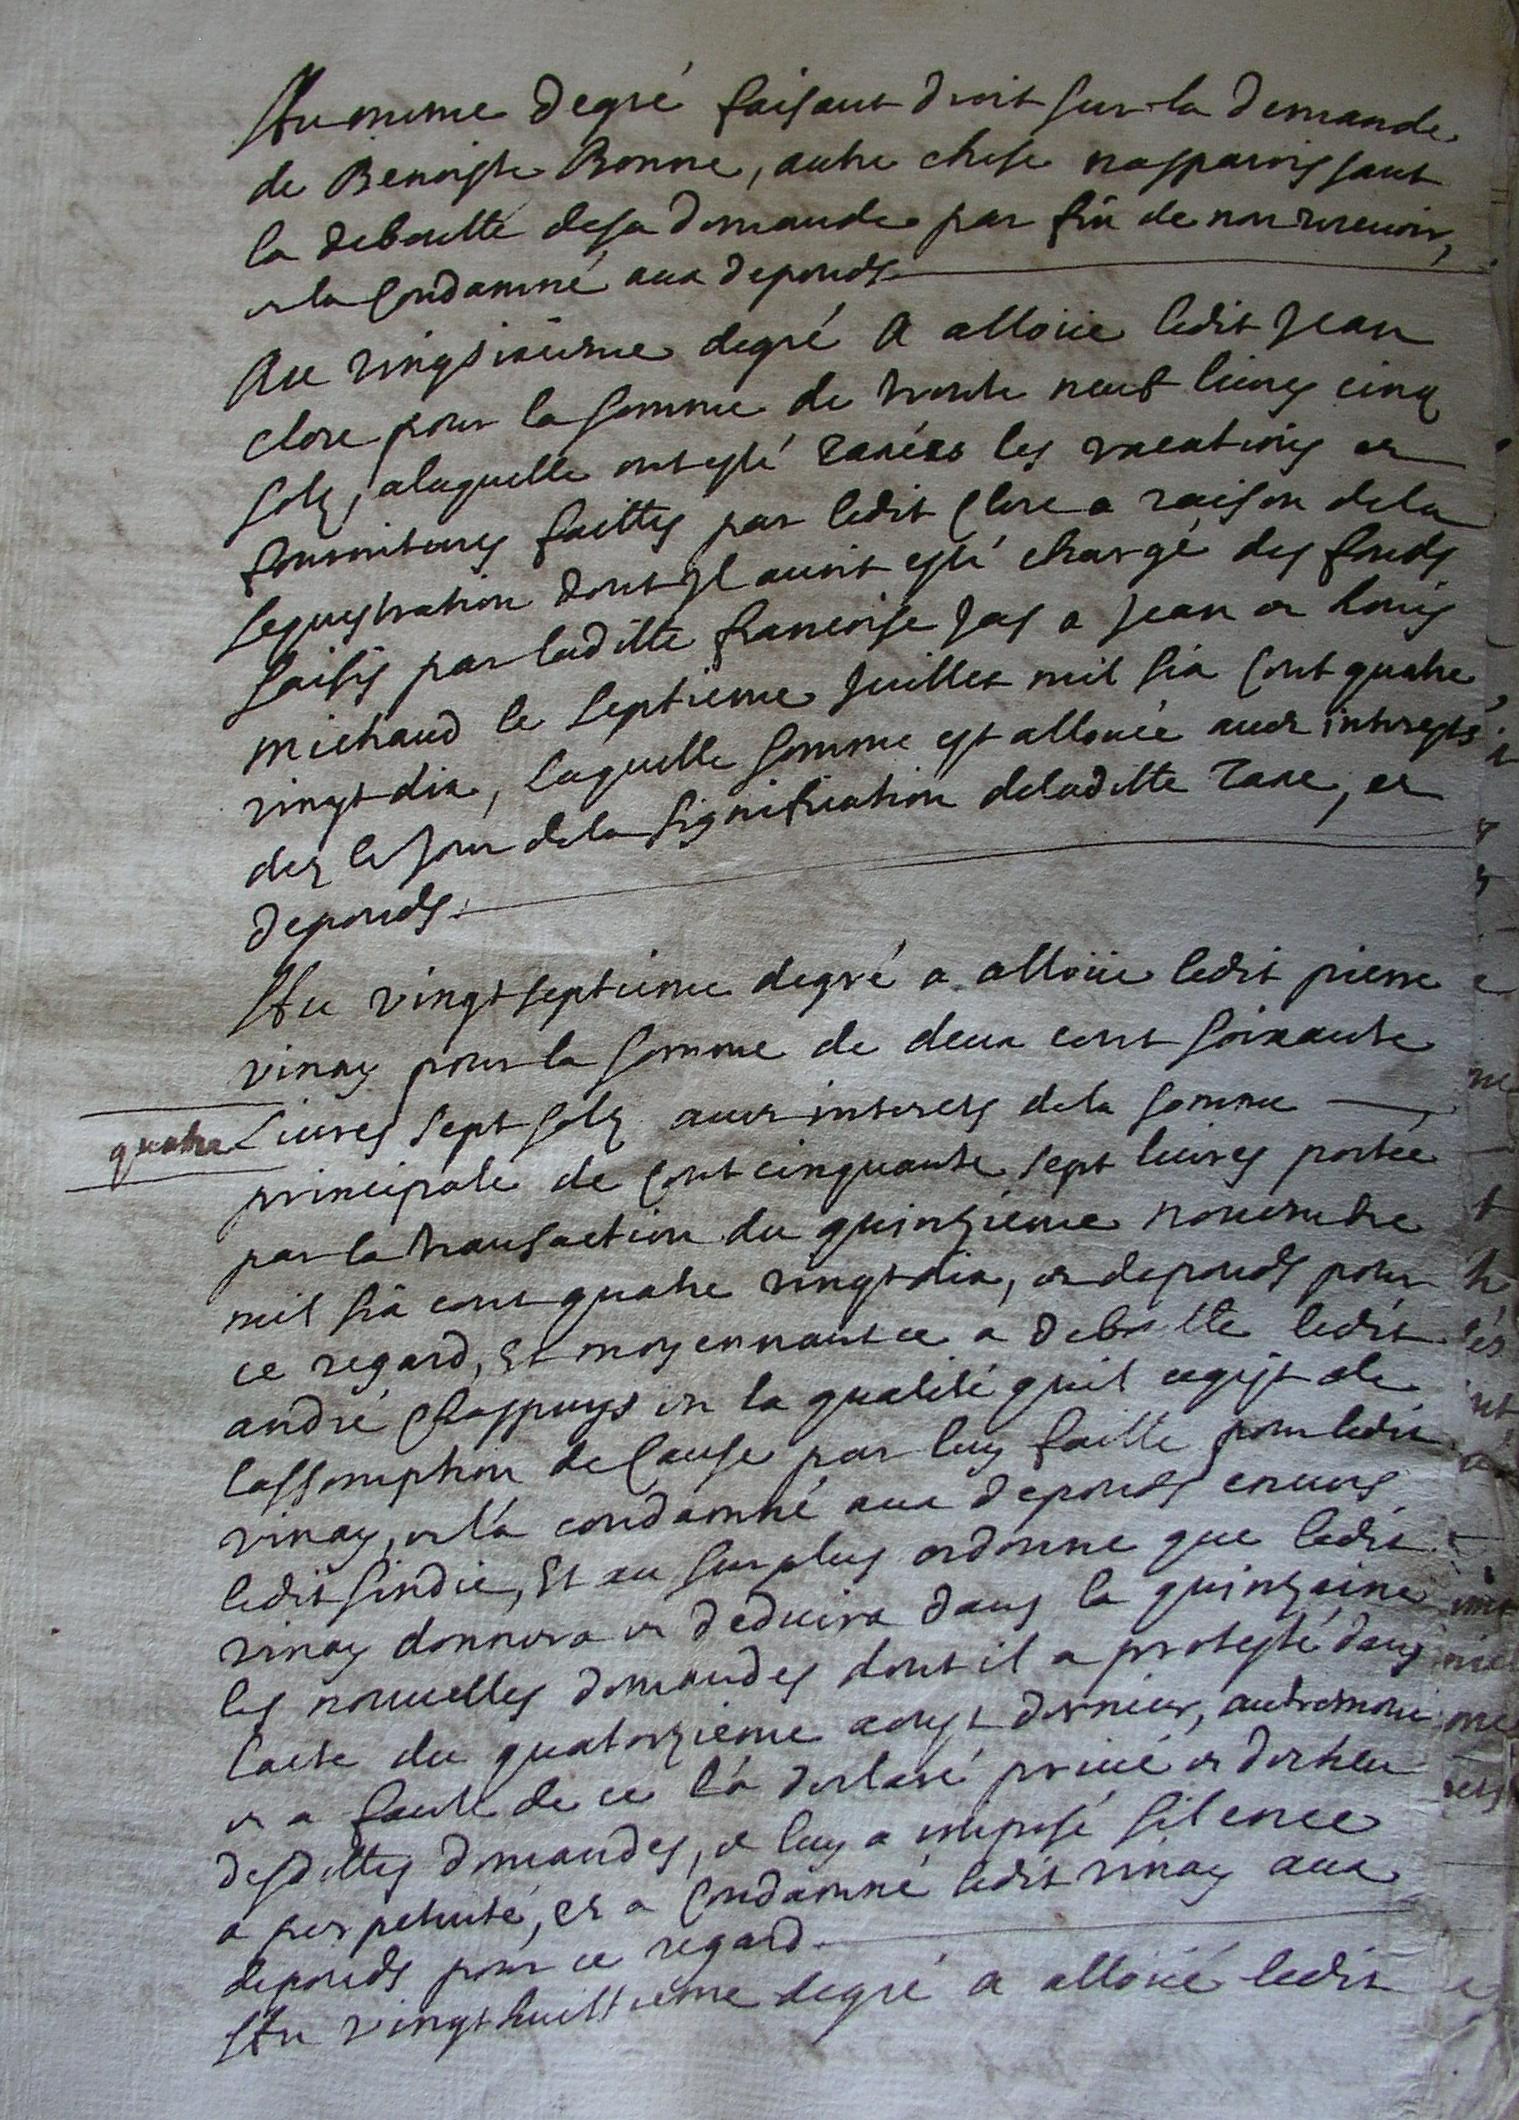 Au mesme degré faisant droit sur la demande
de Benoiste Bonne, autre chose napparoissant
la deboutte desa demande par fin de non recevoir,
et la Condamné aux depends
Au vingtsixiesme degré A alloüé ledit Jean
Clore pour la somme de trente neuf liures cinq
solz, alaquelle ont esté taxées les vacations et
fournitures faittes par ledit Clore a raison dela
sequestration dont Jl auoit esté chargé des fonds
saisis par laditte francoise Jas a Jean et Louis
michaud le septieme Juillet mil six Cent quatre
vingt dix, laquelle somme est allouée auec interests
dez le Jour dela signification deladitte taxe, et
depends.
Au vingt septieme degré a alloüé ledit pierre
vinay pour la somme de deux cent soixante
quatre Liures sept solz auec interets dela somme
principale de Cent cinquante sept liures portée
par la transaction du quinzieme nouembre
mil six cent quatre vingt dix, et depends pour
ce regard, Et moyennant ce a deboutté ledit
andré Chappuys en la qualité quil agist de
lassomption de Cause par luy faitte pour ledit
vinay, et la condamné aux depends enuers
ledit sindic, Et au surplus ordonne que ledit
vinay donnera et deduira dans la quinzaine
les nouuelles demandes dont il a protesté dans
lacte du quatorzieme aoust dernier, autrement
et a faute de ce l'a declaré priué et descheu
desdittes demandes, et luy a imposé silence
a perpetuité, et a Condamné ledit vinay aux
depends pour ce regard.
Au vingt huittieme degré a alloüé ledit